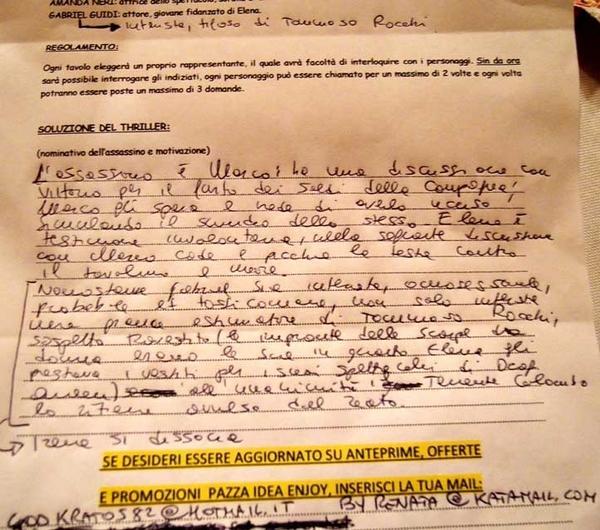 AMANDA NERI: attrice dello spettacolo,
GABRIEL GUIDI: attore, giovane fidanzato di Elena.
interista, tifoso di Tommaso Rocchi
REGOLAMENTO:
Ogni tavolo eleggerà un proprio rappresentante, il quale avrà facoltà di interloquire con i personaggi. Sin da ora
sarà possibile interrogare gli indiziati, ogni personaggio può essere chiamato per un massimo di 2 volte e ogni volta
potranno essere poste un massimo di 3 domande.
SOLUZIONE DEL THRILLER:
(nominativo dell'assassino e motivazione)
L'assassino è Marco: ha una discussione con
Vittorio per il furto dei soldi della Compagnia;
Marco gli spara e tenta di averlo ucciso,
simulando il suicidio dello stesso. Elena è
testimone involontaria, nella seguente discussione
con Marco cade e picchia la testa contro
il tavolino e muore.
Nonostante Gabriel sia interista, omosessuale,
probabile et tossicomane, non solo interista
ma pure estimatore di Tommaso Rocchi,
sospetto travestito (le impronte delle scarpe da
donna erano le sue in quanto Elena gli
prestava i vestiti per i suoi spettacoli di Drag
Queen) all'unanimità il Tenente Colombo
lo ritiene avulso dal reato.
Irene si dissocia
SE DESIDERI ESSERE AGGIORNATO SU ANTEPRIME, OFFERTE
E PROMOZIONI PAZZA IDEA ENJOY, INSERISCI LA TUA MAIL:
GODKRATOS82@HOTMAIL.IT BYRENATA@KATAMAIL.COM